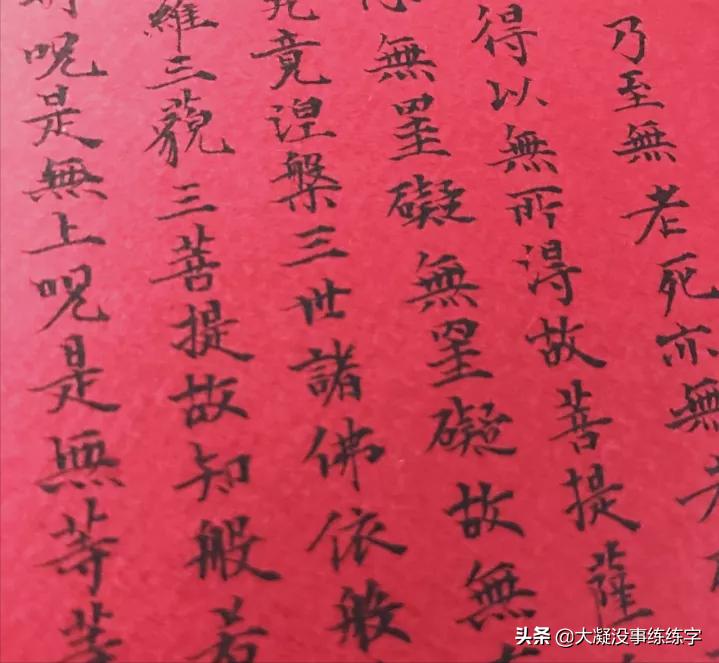 乃至無老死亦無老
得以無所得故菩提薩
無罣礙無罣礙故無
竟涅槃三世諸佛依般
維三藐三菩提故知般若
呪是無上呪是無等等
头条 @大凝没事练练字